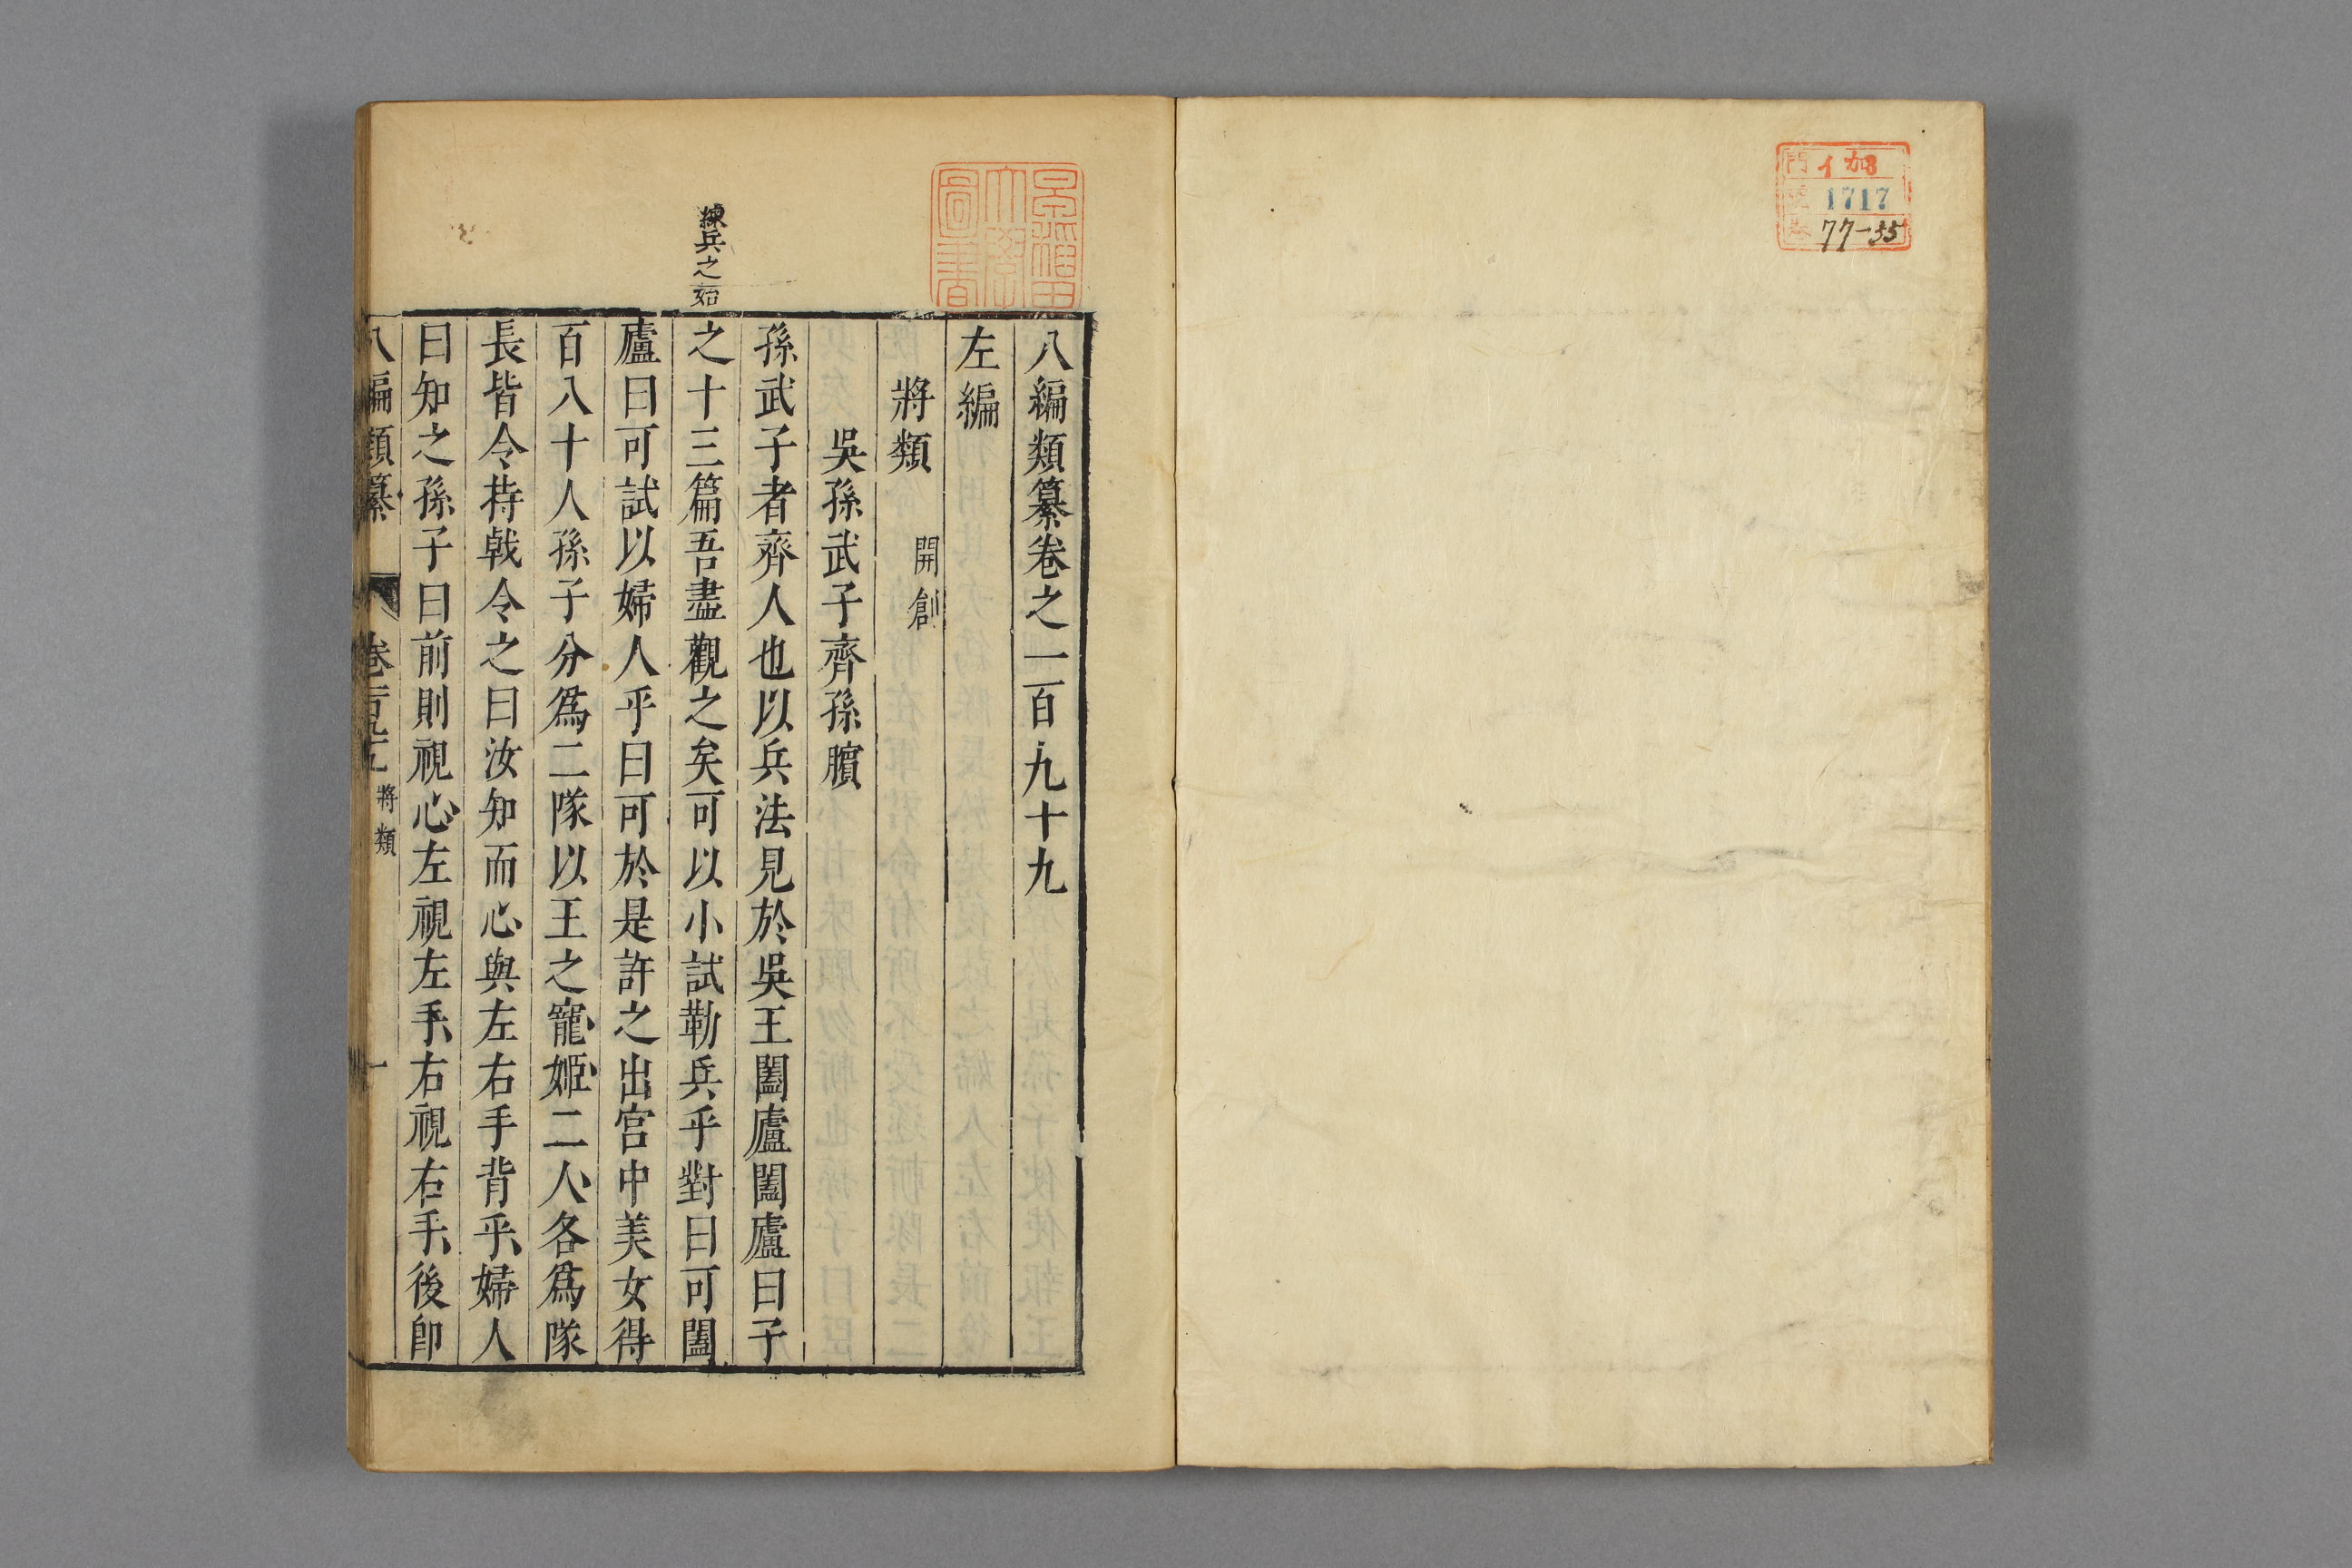 イ 加8
1717
77-35
早稲田
大學
圖書
練兵之始
八編類纂卷之一百九十九
左編
將類 開創
吳孫武子齊孫臏
孫武子者齊人也以兵法見於吳王闔廬闔廬曰子
之十三篇吾盡觀之矣可以小試勒兵乎對曰可闔
廬曰可試以婦人乎曰可於是許之出宮中美女得
百八十人孫子分爲二隊以王之寵姬二人各爲隊
長皆令持戟令之曰汝知而心與左右手背乎婦人
曰知之孫子曰前則視心左視左手右視右手後卽
八編類纂 將類 一